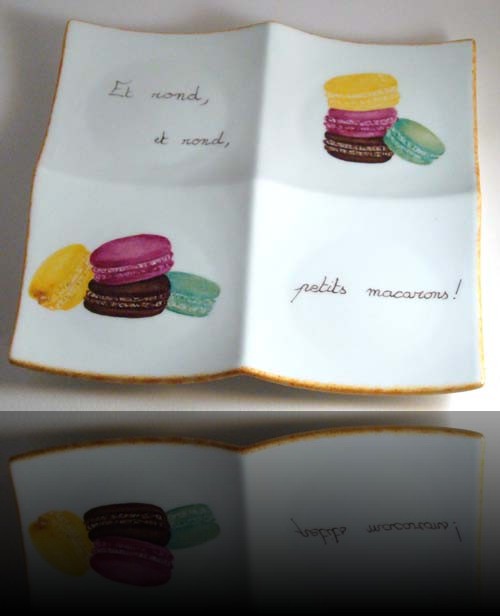 Et rond,
et rond,
petits macarons!